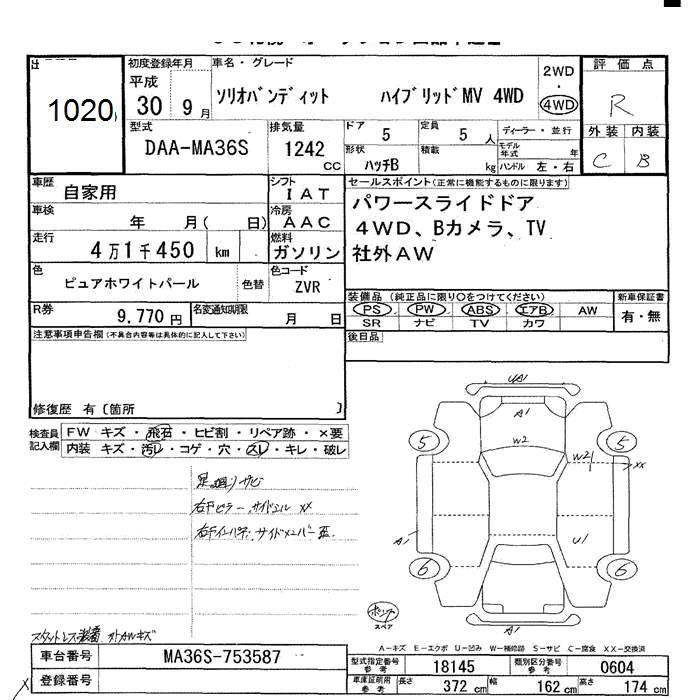 1020
初度登録年月
平成
30 9 月
車名・グレード
ソリオバンディット ハイブリッドMV 4WD
2WD
・
4WD
評価点
R
外装 内装
C B
型式
DAA-MA36S
排気量
1242
CC
ドア 5
定員 5 人
形状 ハッチB
積載 kg
ディーラー・並行
モデル年式 年
ハンドル 左・右
車歴 自家用
シフト IAT
車検 年 月( 日)
冷房 AAC
走行 4万1千450 km
燃料 ガソリン
色 ピュアホワイトパール 色替
色コード ZVR
セールスポイント(正常に機能するものに限ります)
パワースライドドア
4WD、Bカメラ、TV
社外AW
R券 9,770 円
名変通知期限 月 日
装備品(純正品に限り○をつけてください)
PS PW ABS エアB AW
SR ナビ TV カワ
新車保証書
有・無
後日品
注意事項申告欄(不具合内容等は具体的に記入して下さい)
修復歴 有〔箇所 〕
検査員記入欄
FW キズ・飛石・ヒビ割・リペア跡・×要
内装 キズ・汚レ・コゲ・穴・スレ・キレ・破レ
足廻りサビ
右Fピラー、サイドシル XX
UA1
A1
W2
W21
XX
5
5
A1
U1
6
6
A1
スペア
A-キズ E-エクボ U-凹み W-補修跡 S-サビ C-腐食 XX-交換済
車台番号 MA36S-753587
登録番号
型式指定番号 参考 18145
類別区分番号 参考 0604
車庫証明用 参考 長さ 372 cm 幅 162 cm 高さ 174 cm